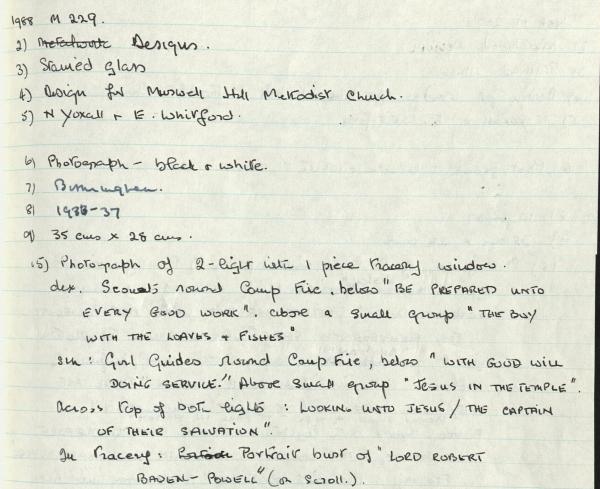 1988 M 229.
2) Metalwork Designs.
3) Stained glass
4) Design for Muswell Hill Methodist Church.
5) N Yoxall + E. Whitford.
6) Photograph - black & white.
7) Birmingham.
8) 1936-37
9) 35 cms x 28 cms.
15) Photograph of 2-light with 1 piece tracery window.
dex. Scouts round Camp Fire, below "BE PREPARED UNTO
EVERY GOOD WORK". above a small group "THE BOY
WITH THE LOAVES + FISHES"
sin: Girl Guides round Camp Fire, below "WITH GOOD WILL
DOING SERVICE." Above small group "JESUS IN THE TEMPLE".
Across top of both lights: LOOKING UNTO JESUS / THE CAPTAIN
OF THEIR SALVATION".
In Tracery: Portrait bust of "LORD ROBERT
BADEN-POWELL" (on scroll.).